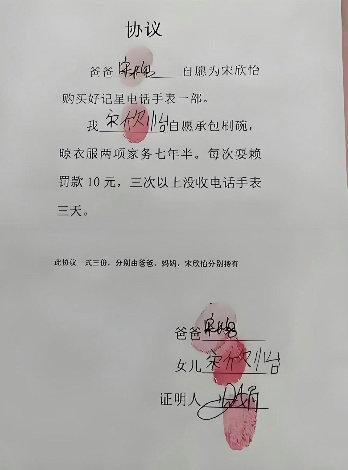 协议
爸爸宋 自愿为宋欣怡
购买好记星电话手表一部。
我宋欣怡自愿承包刷碗，
晾衣服两项家务七年半。每次耍赖
罚款10元，三次以上没收电话手表
三天。
此协议一式三份，分别由爸爸、妈妈、宋欣怡分别持有
爸爸宋
女儿宋欣怡
证明人